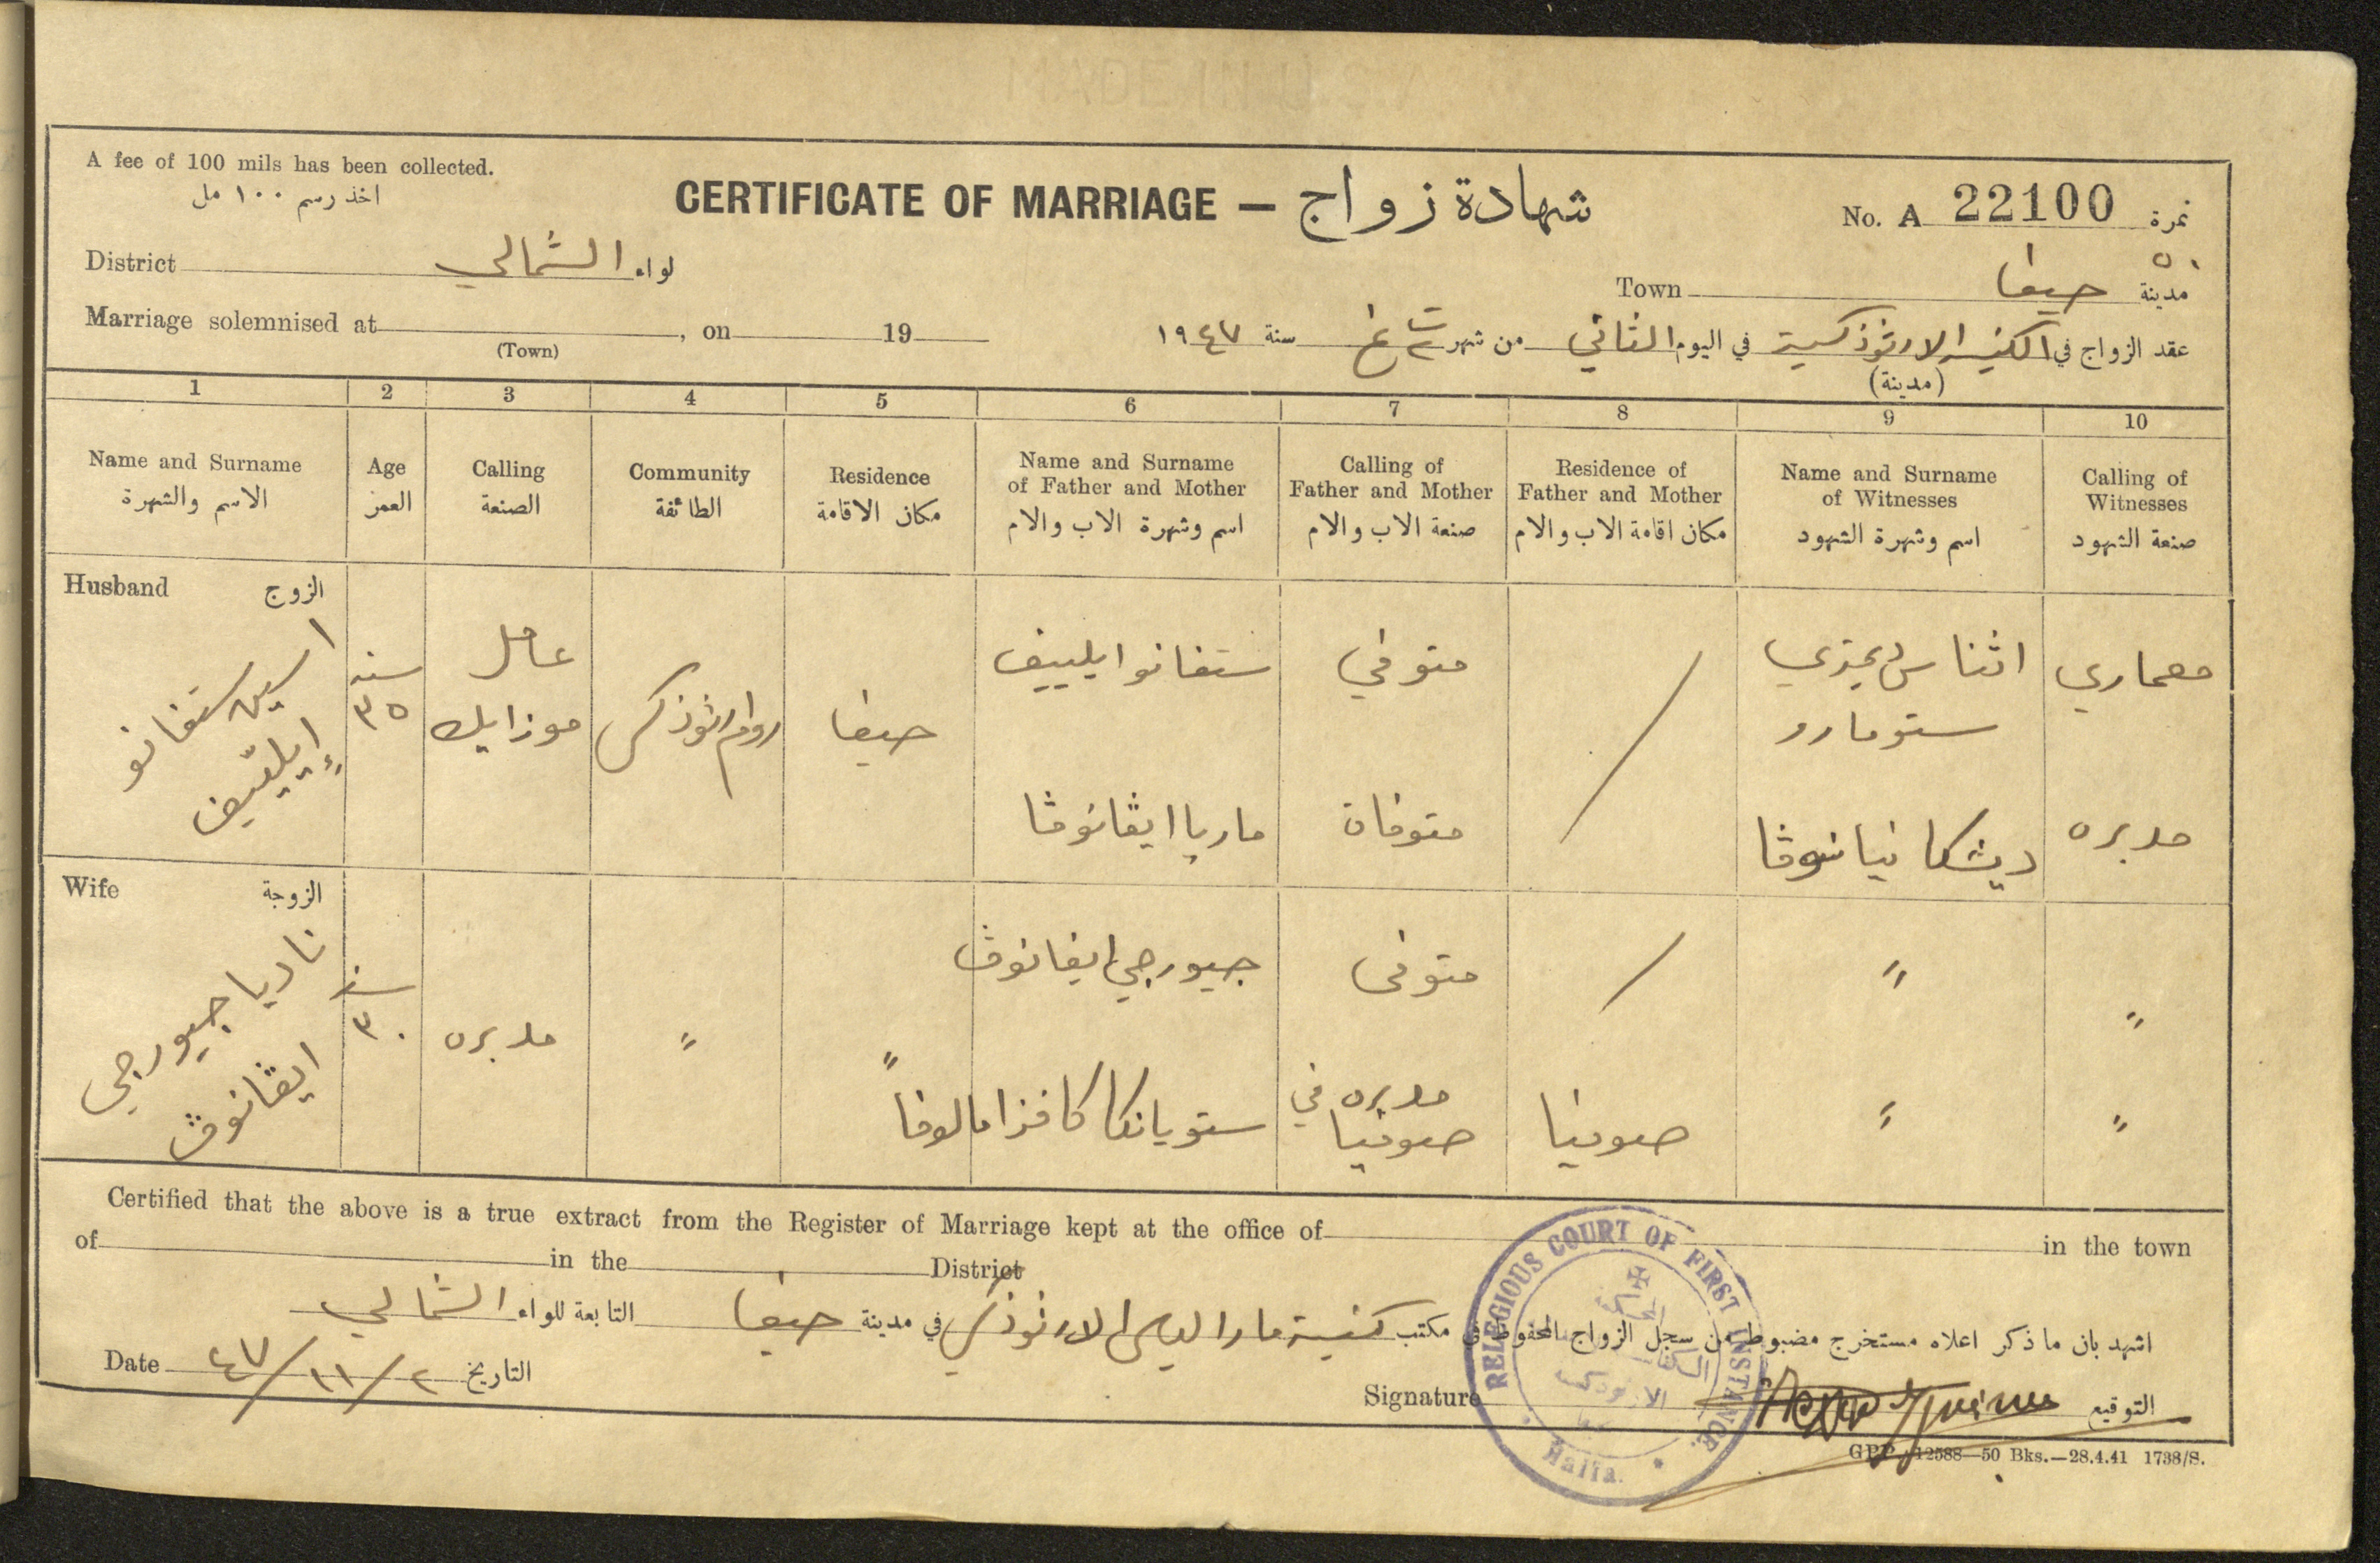 A fee of 100 mils has been collected.
اخذ رسم ١٠٠ مل
CERTIFICATE OF MARRIAGE — شهادة زواج
No. A 22100 نمرة
District الشمالي لواء
Town حيفا مدينة
Marriage solemnised at , on 19
(Town)
عقد الزواج في الكنيسة الارثوذكسية في اليوم الثاني من شهر سنة ١٩٤٧
(مدينة)
1 2 3 4 5 6 7 8 9 10
Name and Surname
الاسم والشهرة
Age
العمر
Calling
الصنعة
Community
الطائفة
Residence
مكان الاقامة
Name and Surname
of Father and Mother
اسم وشهرة الاب والام
Calling of
Father and Mother
صنعة الاب والام
Residence of
Father and Mother
مكان اقامة الاب والام
Name and Surname
of Witnesses
اسم وشهرة الشهود
Calling of
Witnesses
صنعة الشهود
Husband الزوج
اسين ستفانو
إيلييف
سنة
٣٥
عامل
موزايك
روم ارثوذكس
حيفا
ستفانو ايلييف
ماريا ايڤانوڤا
متوفي
متوفاة
اثناس
ستومارو
ديشكا نيانوڤا
معماري
مدبره
Wife الزوجة
ناديا جيورجي
ايڤانوڤ
سنة
٣٠
مدبره
"
"
جيورجي ايفانوڤ
ستويانكا كافزامالوفا
متوفى
مدبره في
صوفيا
صوفيا
"
"
"
"
Certified that the above is a true extract from the Register of Marriage kept at the office of in the town
of in the District
اشهد بان ما ذكر اعلاه مستخرج مضبوط من سجل الزواج المحفوظ في مكتب كنيسة مار الياس الارثوذكس في مدينة حيفا التابعة للواء الشمالي
Date ٢/١١/٤٧ التاريخ
Signature التوقيع
RELEGIOUS COURT OF FIRST INSTANCE.
Haifa.
GPP. 12588—50 Bks.—28.4.41 1738/S.